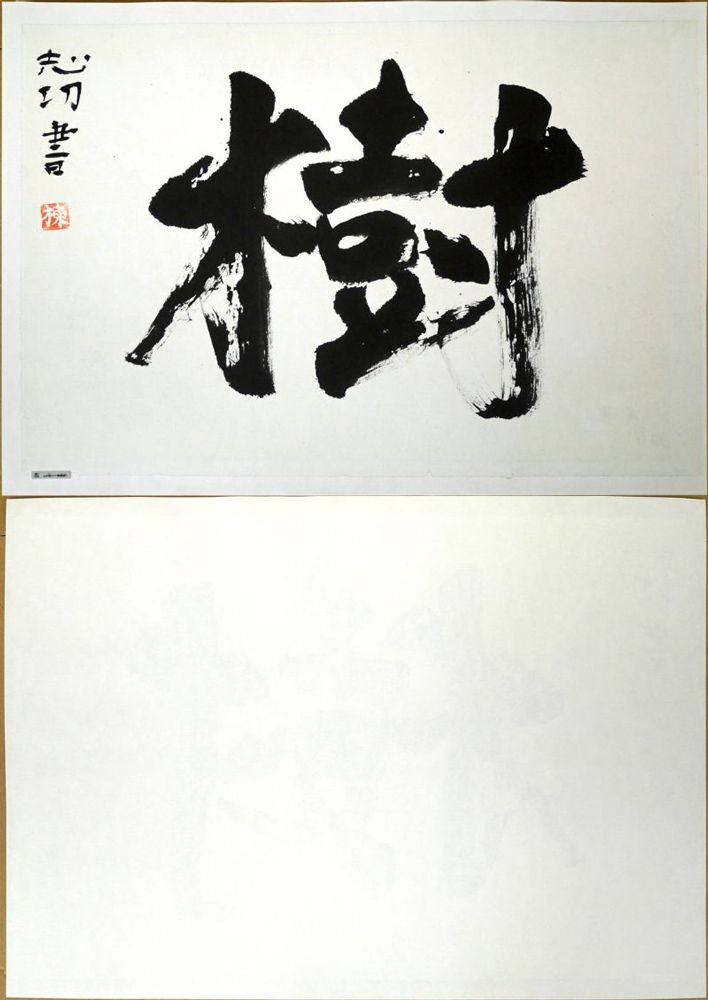 樹
志功書
棟